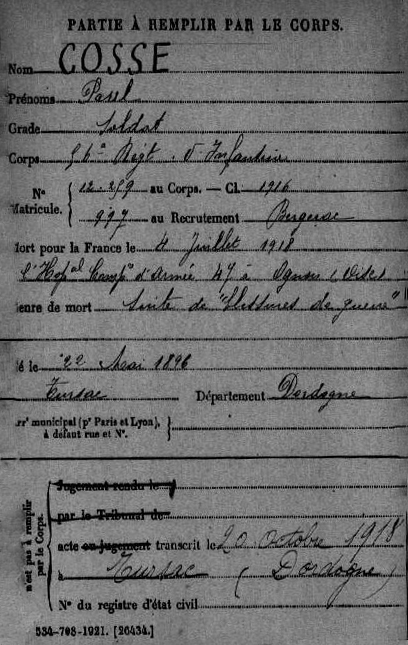 PARTIE À REMPLIR PAR LE CORPS.
Nom COSSE
Prénoms Paul
Grade Soldat
Corps 56e Régt d'Infanterie
N° Matricule. { 12.259 au Corps. — Cl. 1916
997 au Recrutement Bergerac
ort pour la France le 4 Juillet 1918
l'Hopal Campt d'Armée 47 à Ognon (Oise)
enre de mort Suite de "blessures de guerre"
é le 22 Mai 1896
Tursac Département Dordogne
rrt municipal (pr Paris et Lyon), à défaut rue et N°.
n'est pas à remplir par le Corps.
Jugement rendu le
par le Tribunal de
acte ou jugement transcrit le 20 octobre 1918
à Tursac (Dordogne)
N° du registre d'état civil
534-708-1921. [26434.]